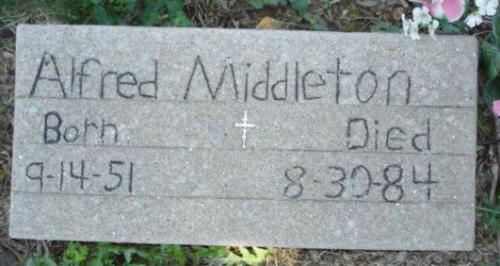 Alfred Middleton
Born Died
9-14-51 8-30-84